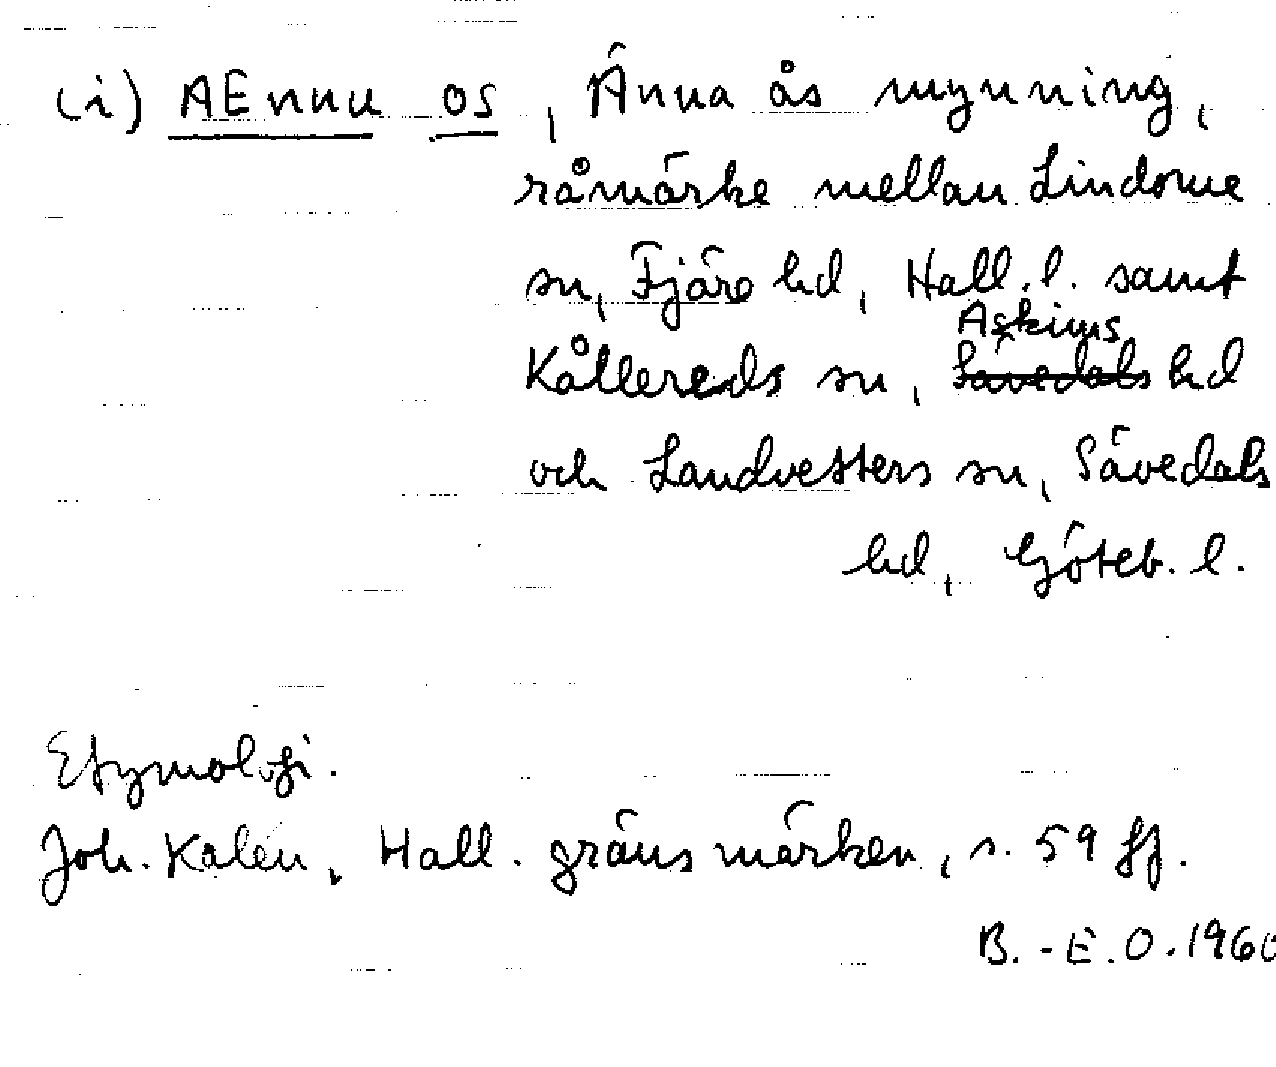 (i) AEnnu os, Änna ås mynning,
råmärke mellan Lindome
sn, Fjäre hd, Hall. l. samt
Askims
Kållereds sn, Sävedals hd
och Landvetters sn, Sävedals
hd, Göteb. l.
Etymologi.
Joh. Kalén, Hall. gränsmärken, s. 59 ff.
B.-E.O. 1960